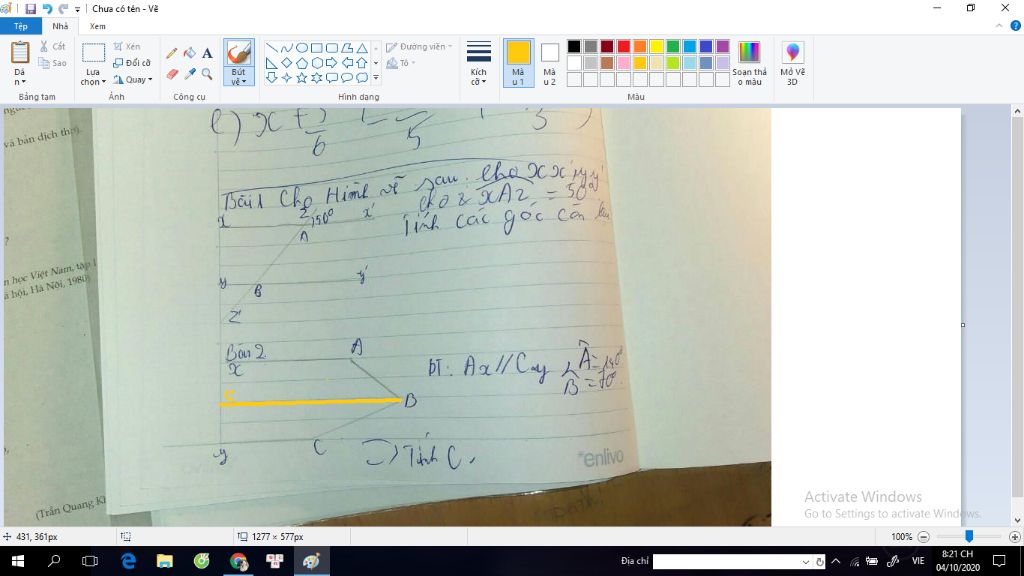 Chưa có tên - Vẽ
Tệp Nhà Xem
Dán
Cắt
Sao
Bảng tạm
Lựa chọn
Xén
Đổi cỡ
Quay
Ảnh
Công cụ
Bút vẽ
Hình dạng
Đường viền
Tô
Kích cỡ
Màu 1
Màu 2
Màu
Soạn thảo màu
Mở Vẽ 3D
và bản dịch thơ).
?
n học Việt Nam, tập I
ã hội, Hà Nội, 1980)
(Trần Quang Kh
e) x + 5/6
Bài 1 Cho Hình vẽ sau. Cho xx' // yy'
Cho & xAz = 50°
Tính các góc còn
x z 50° x'
A
y B y'
z'
Bài 2
x A
ĐT: Ax // Cy
B = 70°
B
y C
=> Tính C.
enlivo
Activate Windows
Go to Settings to activate Windows.
431, 361px
1277 × 577px
100%
Địa chỉ
VIE
8:21 CH
04/10/2020